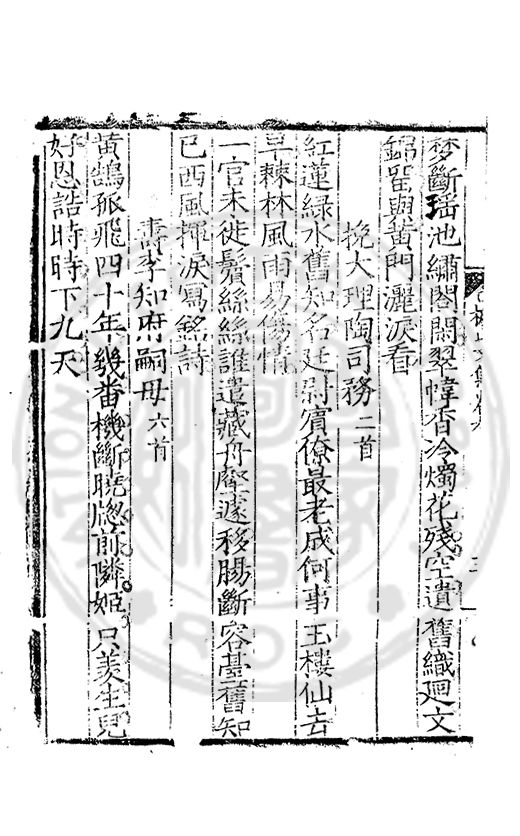 夢斷瑤池繡閣閑翠幃香冷燭花殘空遺舊織廻文
錦留與黃門灑淚看
挽大理陶司務二首
紅蓮綠水舊知名廷尉賓僚最老成何事玉樓仙去
早棘林風雨易傷情
一官未徙鬢絲絲誰遣藏舟壑遽移腸斷容臺舊知
己西風揮淚寫銘詩
壽李知府嗣母六首
黃鵠孤飛四十年幾番機斷曉窓前隣姬只羨生兒
好恩誥時時下九天